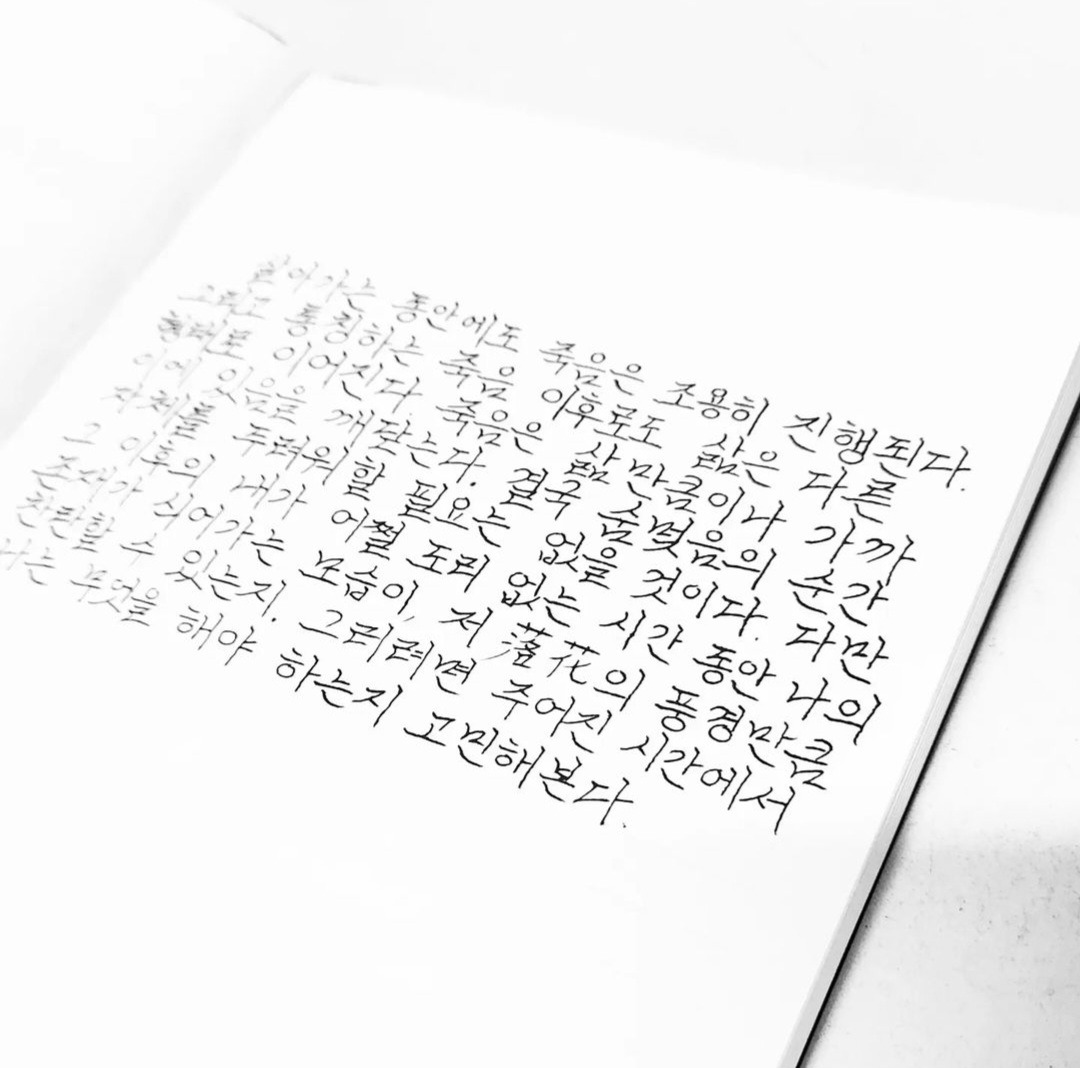 살아가는 동안에도 죽음은 조용히 진행된다.
그리고 통칭하는 죽음 이후로도 삶은 다른
형태로 이어진다. 죽음은 삶만큼이나 가까
이에 있음을 깨닫는다. 결국 숨멎음의 순간
자체를 두려워 할 필요는 없을 것이다. 다만
그 이후의 내가 어쩔 도리 없는 시간 동안 나의
존재가 식어가는 모습이, 저 落花의 풍경만큼
찬란할 수 있는지. 그러려면 주어진 시간에서
나는 무엇을 해야 하는지 고민해본다.